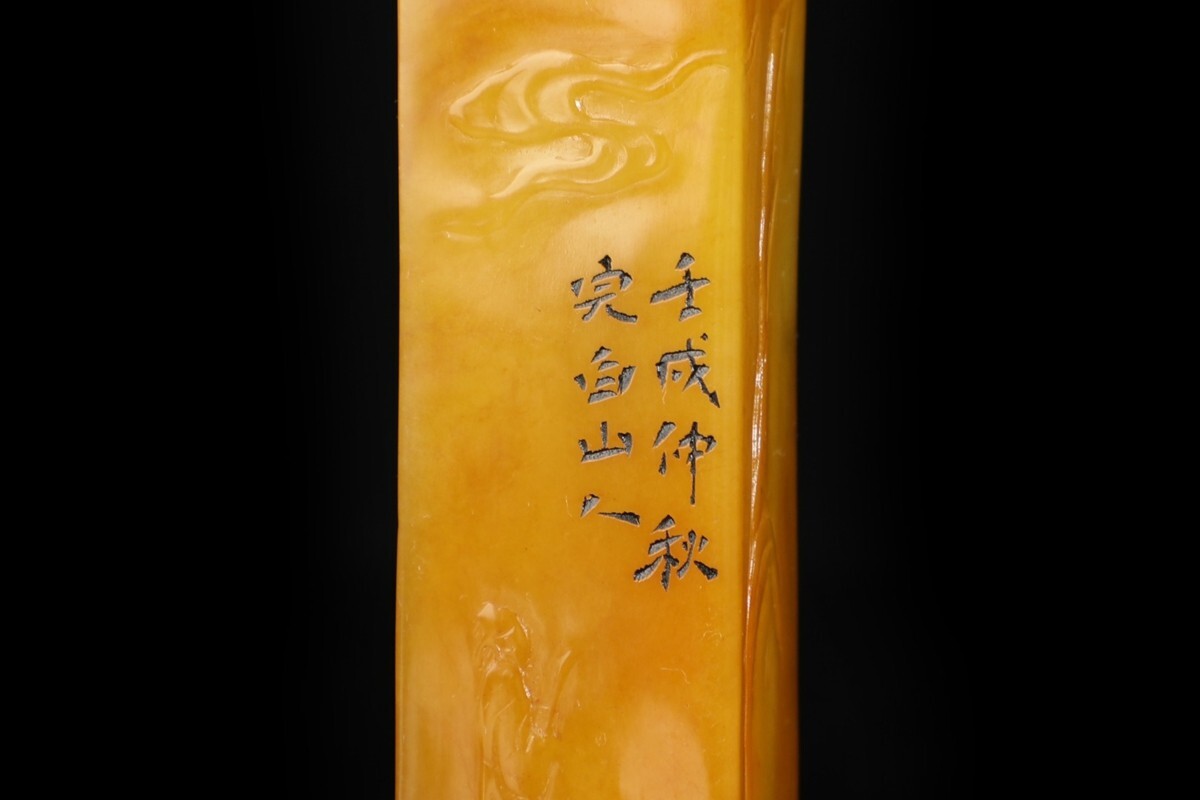 壬戌仲秋
完白山人